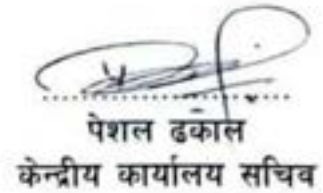 पेशल ढकाल
केन्द्रीय कार्यालय सचिव